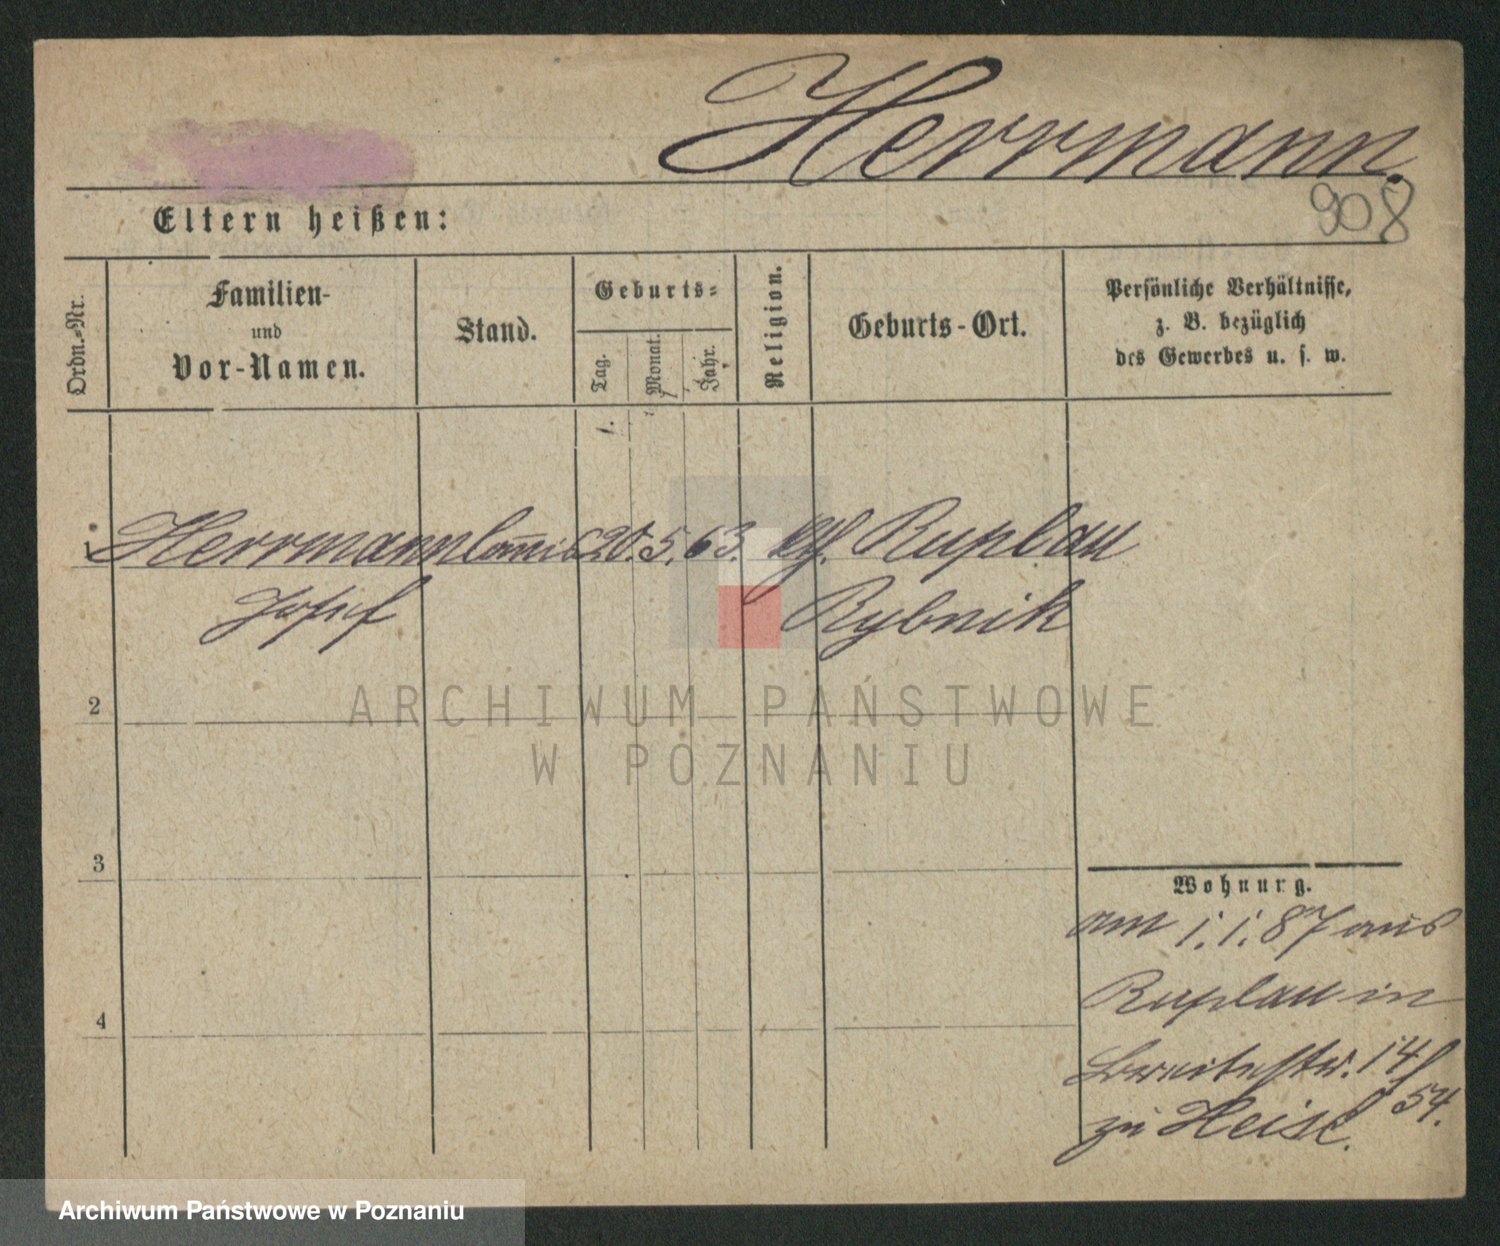 Herrmann.
908
Eltern heißen:
Ordn.-Nr.
Familien-
und
Vor-Namen.
Stand.
Geburts-
Tag.
Monat.
Jahr.
Religion.
Geburts-Ort.
Persönliche Verhältnisse,
z. B. bezüglich
des Gewerbes u. s. w.
1 Herrmann Commis 20. 5. 63. Ruplau
Josef Rybnik
2
3
4
Wohnung.
am 1. 1. 87 aus
Ruplau in
Breitestr. 14
zu Heisl. 54.
ARCHIWUM PAŃSTWOWE
W POZNANIU
Archiwum Państwowe w Poznaniu